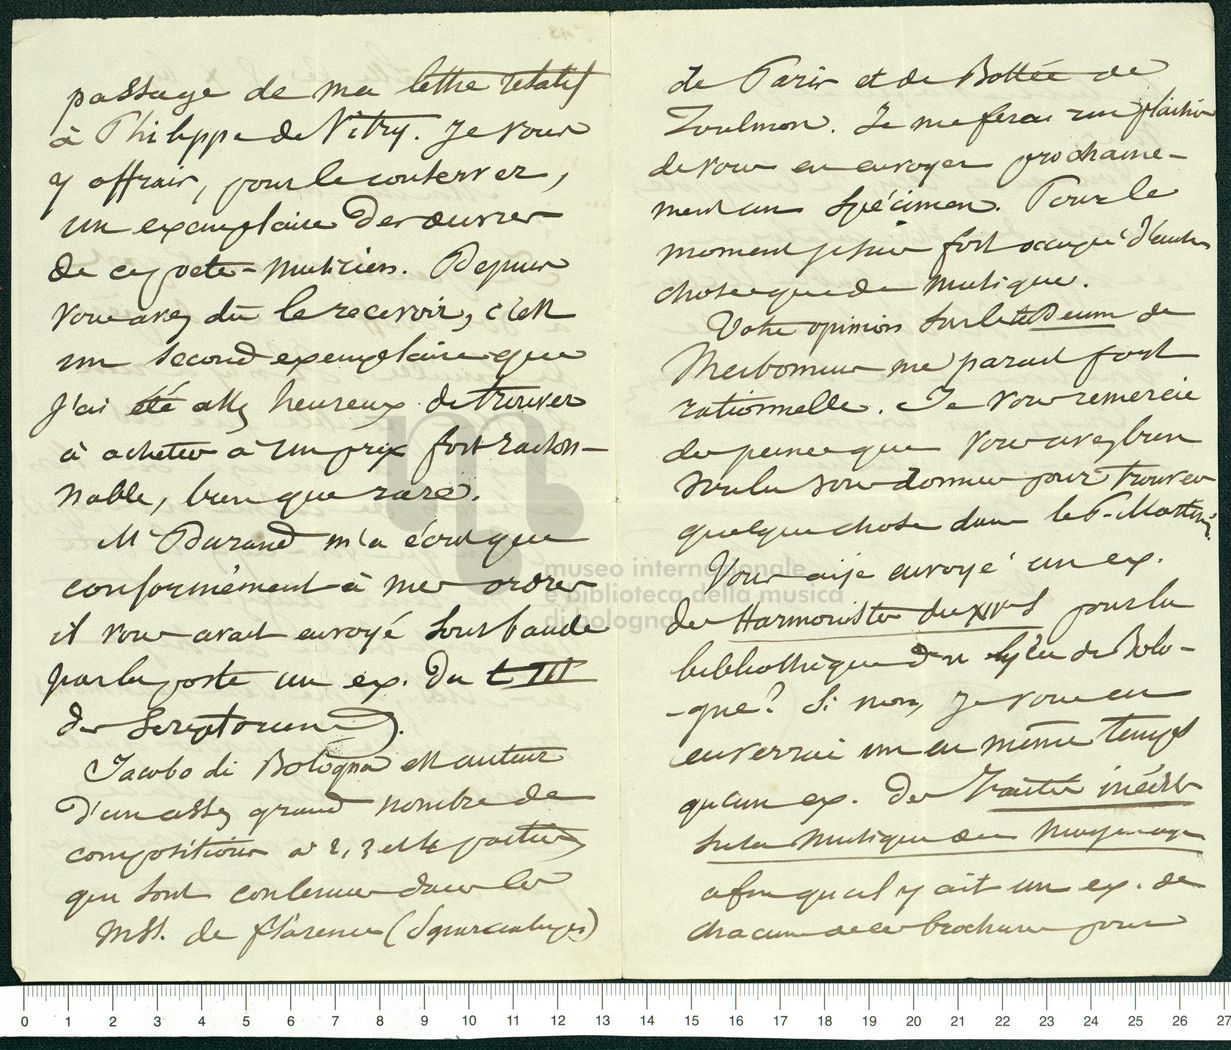 passage de ma lettre relatif
à Philippe de Vitry. Je vous
y offrais, pour le conserver,
un exemplaire des œuvres
de ce poete-musicien. Depuis
vous avez dû le recevoir, c'est
un second exemplaire que
j'ai été assez heureux de trouver
à acheter à un prix fort raison-
nable, bien que rare.
Mr Durand m'a écrit que
conformément à mes ordres
il vous avait envoyé sous bande
par la poste un ex. du t III
des Scriptorum).
Jacobo di Bologna est auteur
d'un assez grand nombre de
compositions à 2, 3 et 4 parties
qui sont contenues dans les
mss. de florence (Squarcialupi)
de Paris et de Bottée de
Toulmon. Je me ferai un plaisir
de vous en envoyer prochaine-
ment un spécimen. Pour le
moment je suis fort occupé d'autre
chose que de musique.
Votre opinion sur le te Deum de
Meibomius me parait fort
rationnelle. Je vous remercie
des peines que vous avez bien
voulu vous donner pour trouver
quelque chose dans le P. Martini.
Vous ai je envoyé un ex.
des Harmonistes du XIV s pour la
bibliothèque du lycée de Bolo-
-gne? Si non, je vous en
enverrai un en même temps
qu'un ex. des Traités inédits
sur la Musique du Moyen age
afin qu'il y ait un ex. de
chacune de ces brochures pour
museo internazionale
e biblioteca della musica
di bologna
0 1 2 3 4 5 6 7 8 9 10 11 12 13 14 15 16 17 18 19 20 21 22 23 24 25 26 27